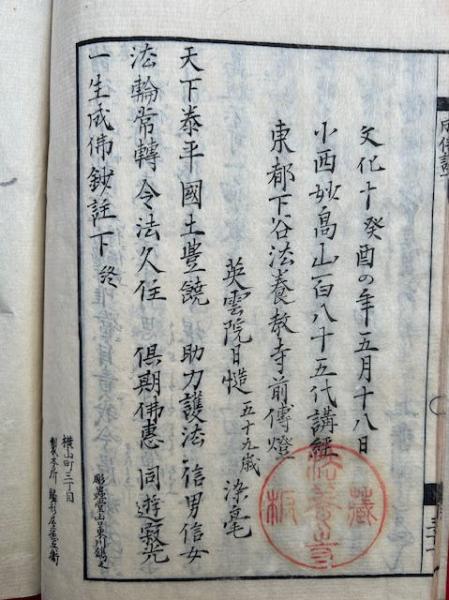 文化十癸酉の年五月十八日
小西妙高山百八十五代講経
東都下谷法養教寺前傳燈
英雲院日愷 五十九歳 染毫
天下泰平 國土豊饒 助力護法 信男信女
法輪常轉 令法久住 俱期佛惠 同遊寂光
一生成佛鈔註下 終
横山町三丁目
製本所
法養寺
藏板